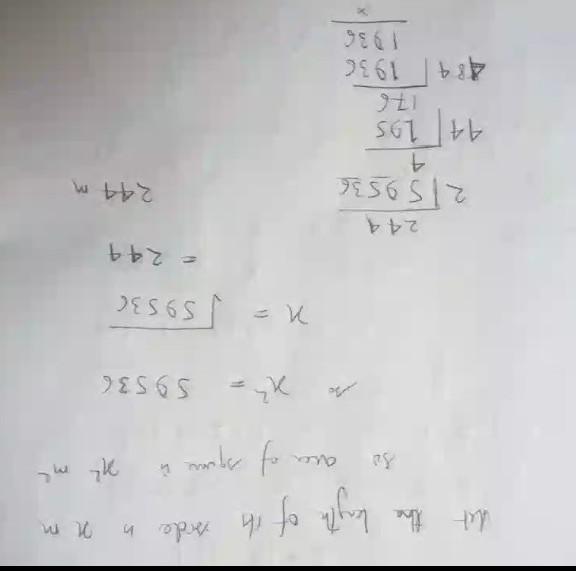 Let the length of its side is x m
so area of square is x² m²
so x² = 59536
x = √59536
= 244
244 m
244
2 | 59536
4
44 | 195
176
484 | 1936
1936
x